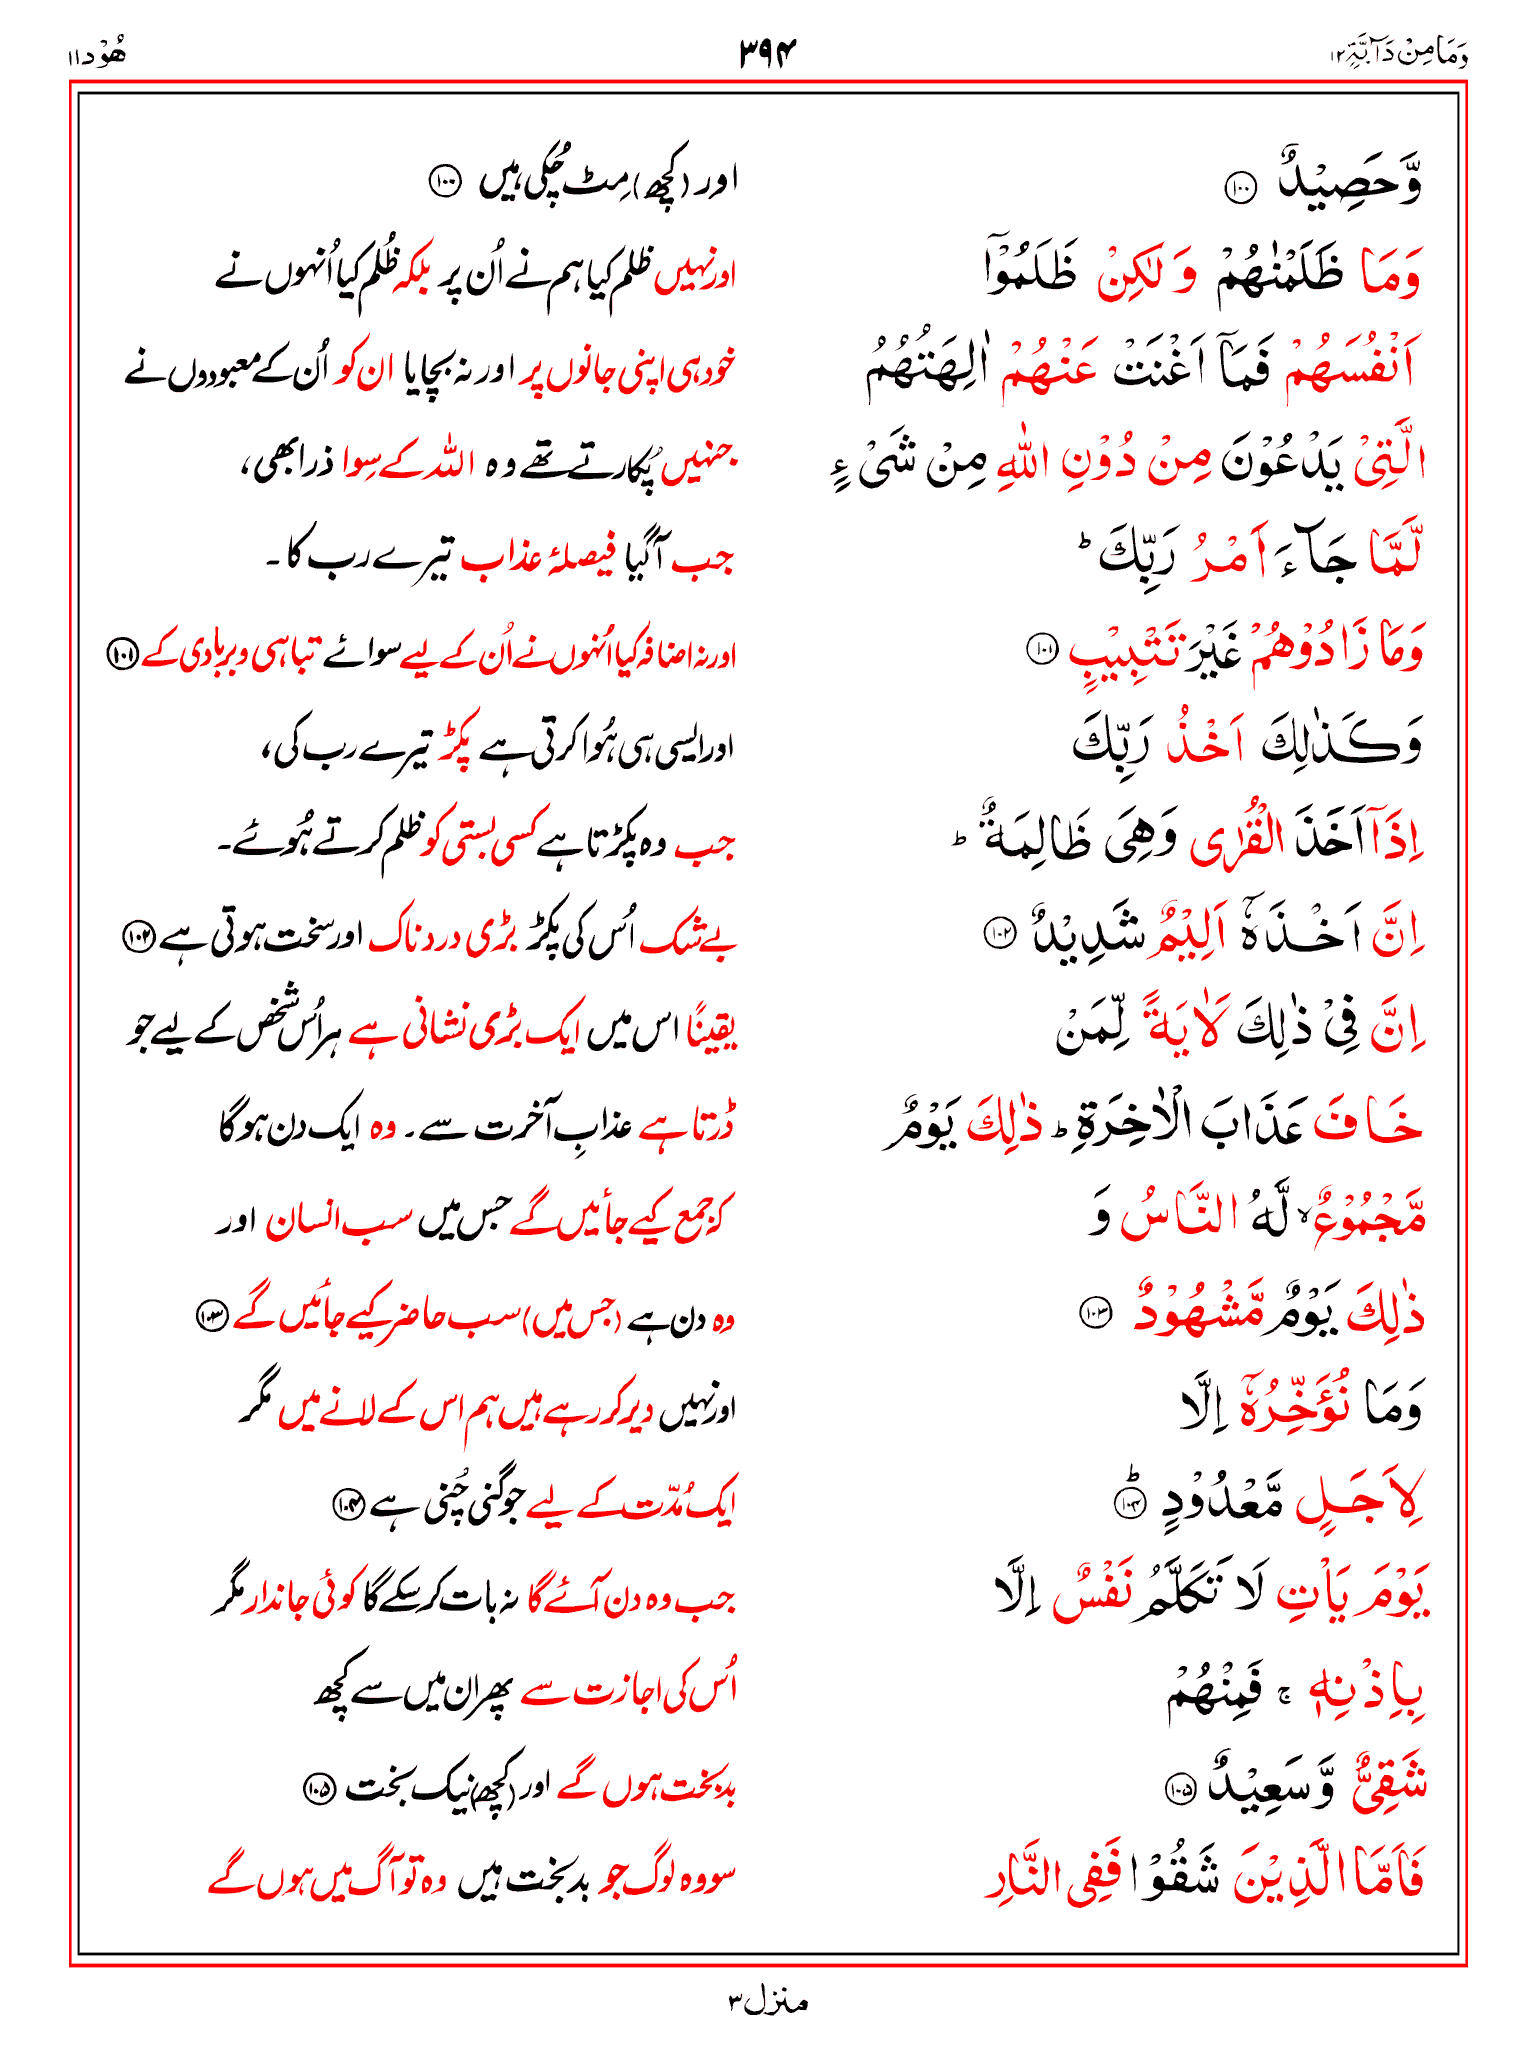 وَمَا مِنْ دَآبَّةٍ ۱۲ ۳۹۴ هُوْد ۱۱
وَّحَصِيْدٌ ۝۱۰۰ اور (کچھ) مِٹ چُکی ہیں ۝۱۰۰
وَمَا ظَلَمْنٰهُمْ وَلٰكِنْ ظَلَمُوْۤا اور نہیں ظلم کیا ہم نے اُن پر بلکہ ظُلم کیا اُنہوں نے
اَنْفُسَهُمْ فَمَاۤ اَغْنَتْ عَنْهُمْ اٰلِهَتُهُمُ خود ہی اپنی جانوں پر اور نہ بچایا ان کو اُن کے معبودوں نے
الَّتِيْ يَدْعُوْنَ مِنْ دُوْنِ اللّٰهِ مِنْ شَيْءٍ جنہیں پُکارتے تھے وہ اللہ کے سِوا ذرا بھی،
لَّمَّا جَآءَ اَمْرُ رَبِّكَ ؕ جب آگیا فیصلۂ عذاب تیرے رب کا۔
وَمَا زَادُوْهُمْ غَيْرَ تَتْبِيْبٍ ۝۱۰۱ اور نہ اضافہ کیا اُنہوں نے اُن کے لیے سوائے تباہی و بربادی کے ۝۱۰۱
وَكَذٰلِكَ اَخْذُ رَبِّكَ اور ایسی ہی ہُوا کرتی ہے پکڑ تیرے رب کی،
اِذَاۤ اَخَذَ الْقُرٰى وَهِيَ ظَالِمَةٌ ؕ جب وہ پکڑتا ہے کسی بستی کو ظلم کرتے ہُوئے۔
اِنَّ اَخْذَهٗۤ اَلِيْمٌ شَدِيْدٌ ۝۱۰۲ بے شک اُس کی پکڑ بڑی دردناک اور سخت ہوتی ہے ۝۱۰۲
اِنَّ فِيْ ذٰلِكَ لَاٰيَةً لِّمَنْ یقینًا اس میں ایک بڑی نشانی ہے ہر اُس شخص کے لیے جو
خَافَ عَذَابَ الْاٰخِرَةِ ؕ ذٰلِكَ يَوْمٌ ڈرتا ہے عذابِ آخرت سے۔ وہ ایک دن ہوگا
مَّجْمُوْعٌ ۙ لَّهُ النَّاسُ وَ کہ جمع کیے جائیں گے جس میں سب انسان اور
ذٰلِكَ يَوْمٌ مَّشْهُوْدٌ ۝۱۰۳ وہ دن ہے (جس میں) سب حاضر کیے جائیں گے ۝۱۰۳
وَمَا نُؤَخِّرُهٗۤ اِلَّا اور نہیں دیر کر رہے ہیں ہم اس کے لانے میں مگر
لِاَجَلٍ مَّعْدُوْدٍ ؕ۝۱۰۴ ایک مُدّت کے لیے جو گنی چُنی ہے ۝۱۰۴
يَوْمَ يَاْتِ لَا تَكَلَّمُ نَفْسٌ اِلَّا جب وہ دن آئے گا نہ بات کر سکے گا کوئی جاندار مگر
بِاِذْنِهٖ ۚ فَمِنْهُمْ اُس کی اجازت سے پھر ان میں سے کچھ
شَقِيٌّ وَّسَعِيْدٌ ۝۱۰۵ بدبخت ہوں گے اور (کچھ) نیک بخت ۝۱۰۵
فَاَمَّا الَّذِيْنَ شَقُوْا فَفِي النَّارِ سو وہ لوگ جو بدبخت ہیں وہ تو آگ میں ہوں گے
منزل ۳